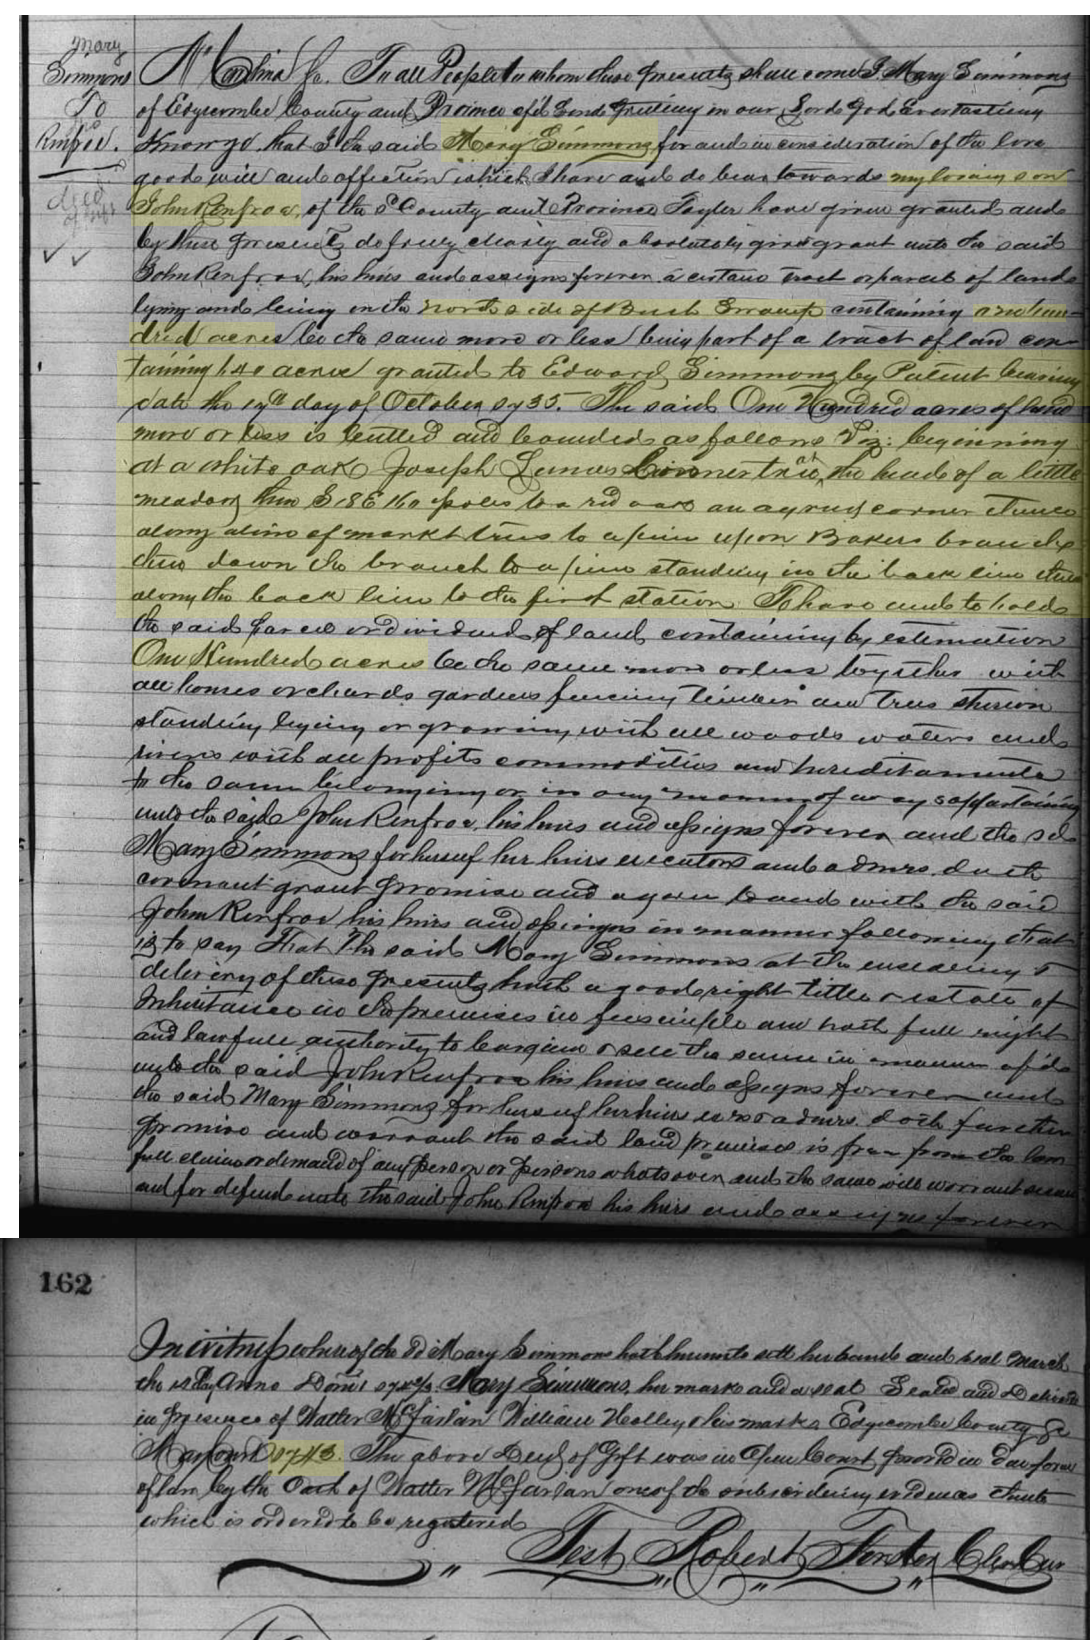 Mary
Simmons
To
Renfroe.
deed
of gift
N Carolina Sc. To all People to whom these presents shall come I Mary Simmons
of Edgecombe County and Province afd Send Greeting in our Lord God Everlasting
Know ye that I the said Mary Simmons for and in consideration of the love
good will and affection which I have and do bear towards my loving son
John Renfroe, of the sd County and Province Taylor have given granted and
by these presents do freely clearly and absolutely give grant unto the said
John Renfroe, his heirs and assigns forever a certain tract or parcel of land
lying and being on the north side of Bush Swamp containing one hun-
dred acres be the same more or less being part of a tract of land con-
taining 640 acres granted to Edward Simmons by Patent bearing
date the 19th day of October 1735. The said One Hundred acres of land
more or less is buttled and bounded as follows Viz: beginning
at a white oak Joseph Lanes Corner tree, at the head of a little
meadow then S 18 E 160 poles to a red oak an agreed corner thence
along a line of markt trees to a pine upon Bakers branch
then down the branch to a pine standing in the back line then
along the back line to the first station To have and to hold
the said parcel or dividend of land containing by estimation
One Hundred acres be the same more or less together with
all houses orchards gardens fencing timber and trees thereon
standing lying or growing with all woods waters and
rivers with all profits commodities and hereditaments
to the same belonging or in any manner of way appertaining
unto the said John Renfroe, his heirs and assigns forever and the sd
Mary Simmons for herself her heirs executors and admrs. doth
covenant grant promise and agree to and with the said
John Renfroe his heirs and assigns in manner following that
is to say That The said Mary Simmons at the ensealing &
delivery of these presents hath a good right title & estate of
Inheritance in the premises in fee simple and hath full right
and lawfull authority to bargain & sell the same in manner afd
unto the said John Renfroe his heirs and assigns forever and
the said Mary Simmons for herself her heirs exrs & admrs. doth further
promise and warrant the said land premises is free from the law
full claim or demand of any person or persons whatsoever and the same will warrant secure
and for defend unto the said John Renfroe his heirs and assigns forever
162
In witness whereof the sd Mary Simmons hath hereunto sett her hand and seal March
the Day Anno Domi Mary Simmons, her mark and a seal Seald and Deliverd
in presence of Walter McFarlan William Holley his mark Edgecombe County Sc
May Court 1743. The above Deed of Gift was in Open Court provd in due form
of law by the Oath of Walter McFarlan one of the subscribing evidences thereto
which is ordered to be registered
Test Robert Forster Cler Cur